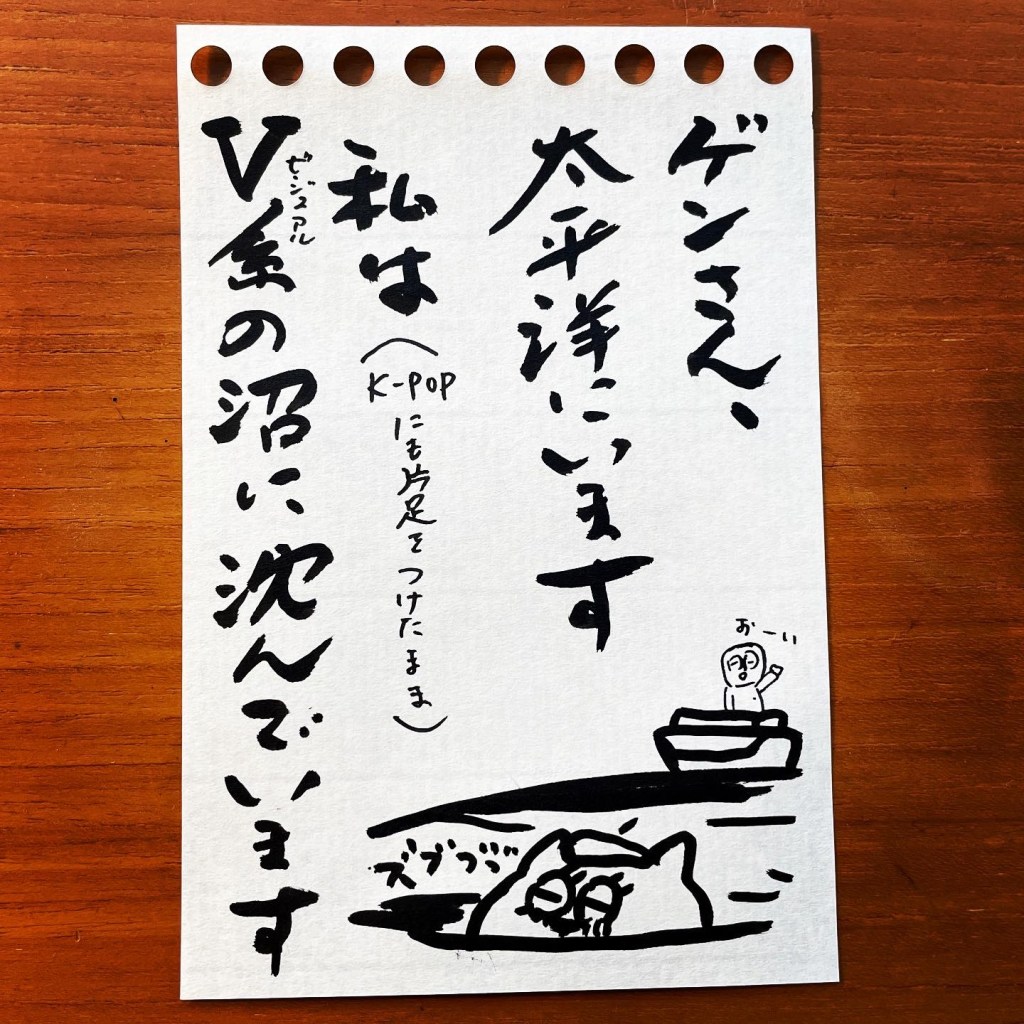 ゲンさん、
太平洋にいます
私は(K-POPにも片足をつけたまま)
V系の沼に沈んでいます
ビジュアル
おーい
ズブブブ